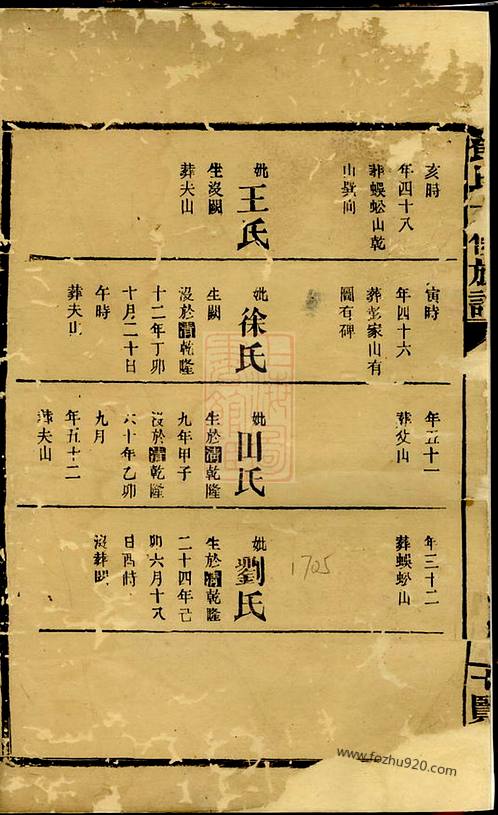 亥時
年四十八
葬蜈蚣山乾
山巽向
妣王氏
生沒闕
葬夫山
寅時
年四十六
葬彭家山有
圖有碑
妣徐氏
生闕
沒於清乾隆
十二年丁卯
十月二十日
午時
葬夫山
年五十一
葬父山
妣田氏
生於清乾隆
九年甲子
沒於清乾隆
六十年乙卯
九月
年五十二
葬夫山
年三十二
葬蜈蚣山
1705
妣劉氏
生於清乾隆
二十四年己
卯六月十八
日酉時
沒葬闕
氏
族譜
賢
www.fozhu920.com